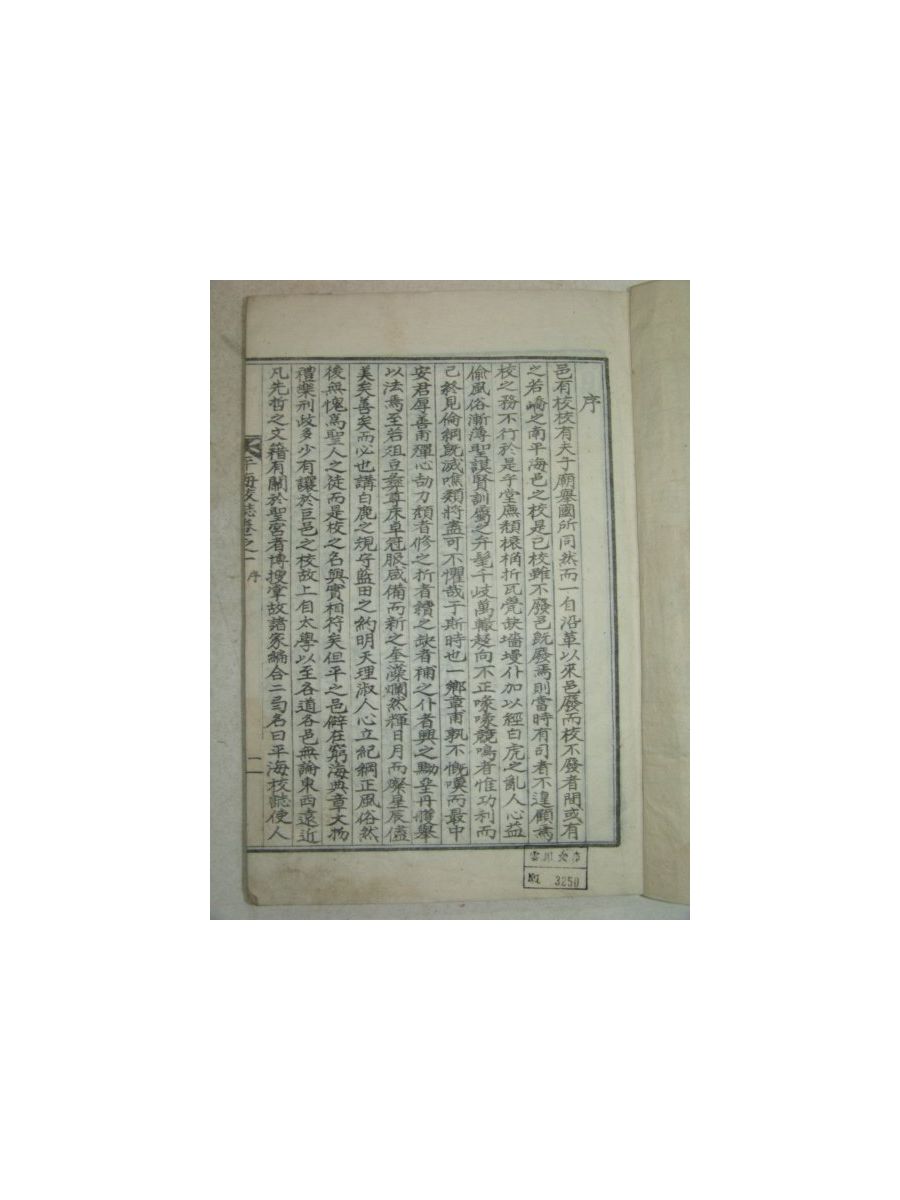 序
邑有校校有夫子廟擧國所同然而一自沿革以來邑廢而校不廢者間或有
之若嶠之南平海邑之校是已校雖不廢邑旣廢焉則當時有司者不遑顧焉
校之務不行於是乎堂廡頹榱桷折瓦甃缺墻墁仆加以經白虎之亂人心益
偸風俗漸薄聖謨賢訓屬之弁髦千岐萬轍趍向不正喙喙競鳴者惟功利而
已終見倫綱旣滅噍類將盡可不懼哉于斯時也一鄉章甫孰不慨嘆而最中
安君厚善甫殫心劼力頹者修之折者續之缺者補之仆者興之黝堊丹雘擧
以法焉至若俎豆彝尊床卓冠服咸備而新之奎藻爛然輝日月而燦星辰儘
美矣善矣而必也講白鹿之規守藍田之約明天理淑人心立紀綱正風俗然
後無愧爲聖人之徒而是校之名與實相符矣但平之邑僻在窮海典章文物
禮樂刑政多少有讓於巨邑之校故上自太學以至各道各邑無論東西遠近
凡先哲之文籍有關於聖宮者博搜掌故諸家編合二弓名曰平海校誌使人
平海校誌卷之一 序 一
雲川文庫
№ 3250